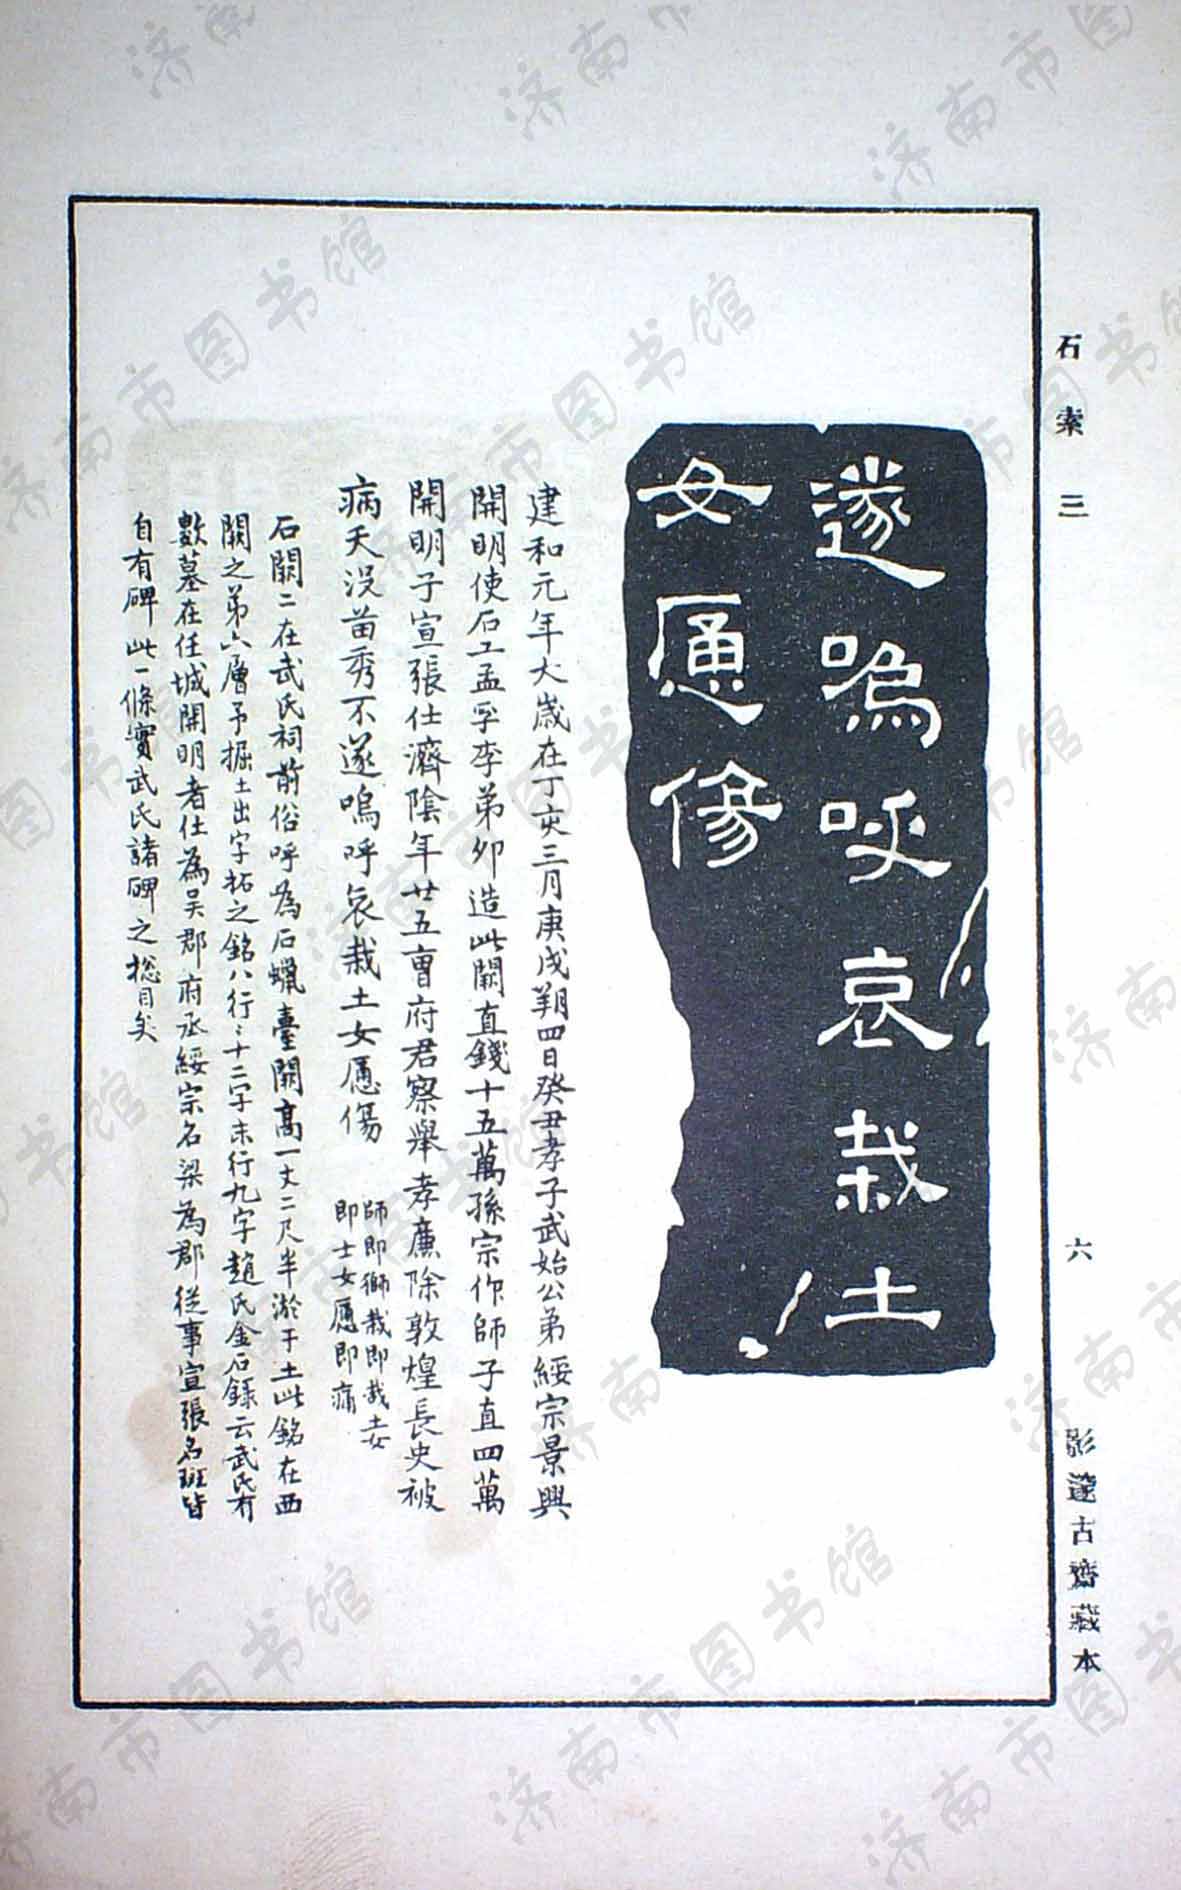 石索三
六
影遂古齋藏本
遂嗚呼哀哉土
女慂傷
建和元年大歲在丁亥三月庚戌朔四日癸丑孝子武始公弟綏宗景興
開明使石工孟孚李弟卯造此闕直錢十五萬孫宗作師子直四萬
開明子宣張仕濟陰年廿五曹府君察舉孝廉除敦煌長史被
病夭沒苗秀不遂嗚呼哀哉土女慂傷
師即獅哉即哉土女
即士女慂即痛
石闕二在武氏祠前俗呼為石蠟臺闕高一丈二尺半淤于土此銘在西
闕之第六層予掘土出字拓之銘八行〻十二字末行九字趙氏金石錄云武氏有
數墓在任城開明者仕為吳郡府丞綏宗名梁為郡從事宣張名班皆
自有碑此一條實武氏諸碑之捴目矣
济南市图书馆